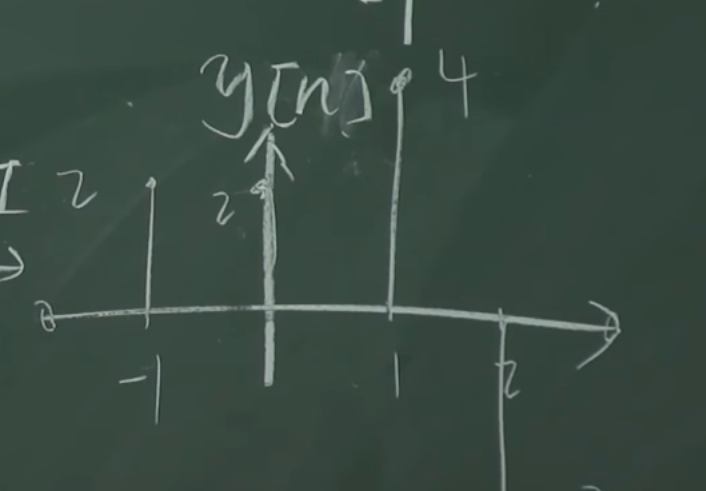 y[n] 4
2 2
-1 1 2